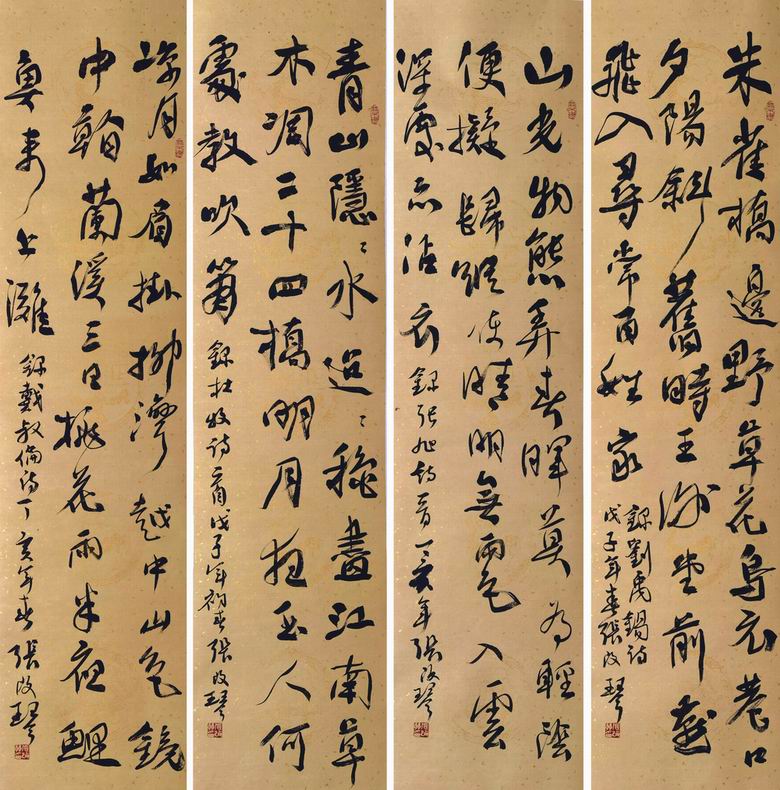 朱雀橋邊野草花烏衣巷口
夕陽斜舊時王謝堂前燕
飛入尋常百姓家
錄劉禹錫詩
戊子年春張改琴
山光物態弄春暉莫為輕陰
便擬歸縱使晴明無雨色入雲
深處亦沾衣 錄張旭詩一首丁亥年張改琴
青山隱〻水迢〻穐盡江南草
木凋二十四橋明月夜玉人何
處教吹簫 錄杜牧詩一首戊子年初春張改琴
涼月如眉掛柳灣越中山色鏡
中看蘭溪三日桃花雨半夜鯉
魚來上灘 錄戴叔倫詩丁亥年春張改琴